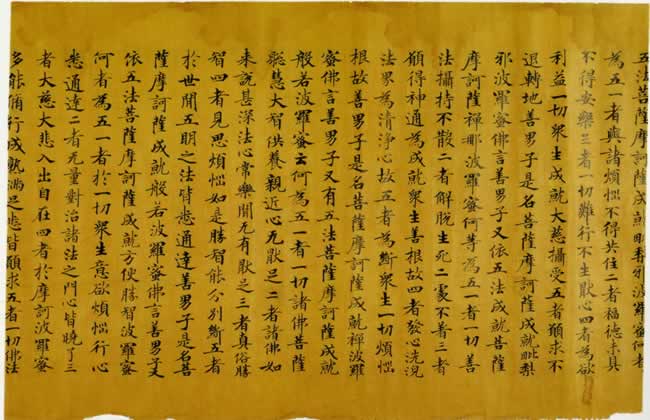 五法菩薩摩訶薩成就毗梨邪波羅蜜何者
為五一者與諸煩惱不得共住二者福德未具
不得安樂三者一切難行不生猒心四者為欲
利益一切衆生成就大慈攝受五者願求不
退轉地善男子是名菩薩摩訶薩成就毗梨
邪波羅蜜佛言善男子又依五法成就菩薩
摩訶薩禪那波羅蜜何等為五一者一切善
法攝持不散二者解脫生死二處不著三者
願得神通為成就衆生善根故四者發心洗浣
法界為清淨心故五者為斷衆生一切煩惱
根故善男子是名菩薩摩訶薩成就禪波羅
蜜佛言善男子又有五法菩薩摩訶薩成就
般若波羅蜜云何為五一者一切諸佛菩薩
聡慧大智供養親近心无猒足二者諸佛如
来説甚深法心常樂聞无有猒足三者真俗勝
智四者見思煩惱如是勝智能分別斷五者
於世間五明之法皆悉通達善男子是名菩
薩摩訶薩成就般若波羅蜜佛言善男子又
依五法菩薩摩訶薩成就方便勝智波羅蜜
何者為五一者於一切衆生意欲煩惱行心
悉通達二者无量對治諸法之門心皆曉了三
者大慈大悲入出自在四者於摩訶波羅蜜
多能脩行成就滿足悉皆願求五者一切佛法